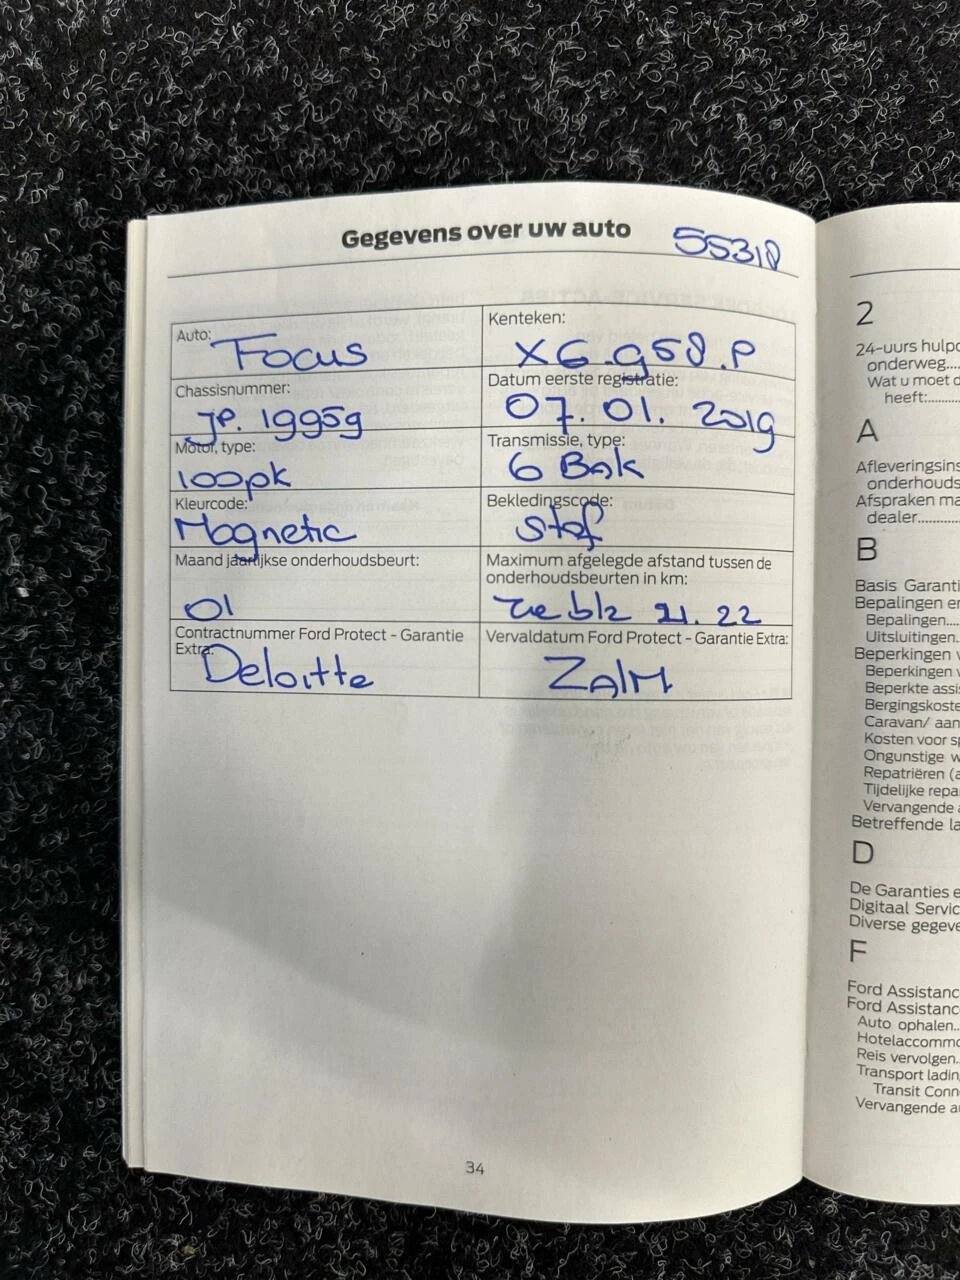 Gegevens over uw auto
55318
Auto:
Focus
Kenteken:
XG.958.P
Chassisnummer:
JP.19959
Datum eerste registratie:
07.01.2019
Motor, type:
100pk
Transmissie, type:
6 Bak
Kleurcode:
Magnetic
Bekledingscode:
Stof
Maand jaarlijkse onderhoudsbeurt:
01
Maximum afgelegde afstand tussen de
onderhoudsbeurten in km:
zie blz 21.22
Contractnummer Ford Protect - Garantie
Extra:
Deloitte
Vervaldatum Ford Protect - Garantie Extra:
ZAIM
34
2
24-uurs hulp
onderweg....
Wat u moet d
heeft:..........
A
Afleveringsins
onderhouds
Afspraken ma
dealer............
B
Basis Garanti
Bepalingen en
Bepalingen....
Uitsluitingen.
Beperkingen v
Beperkingen v
Beperkte assi
Bergingskoste
Caravan/ aan
Kosten voor sp
Ongunstige w
Repatriëren (a
Tijdelijke repa
Vervangende a
Betreffende la
D
De Garanties e
Digitaal Servic
Diverse gegeve
F
Ford Assistanc
Ford Assistanc
Auto ophalen..
Hotelaccommo
Reis vervolgen..
Transport lading
Transit Conn
Vervangende au